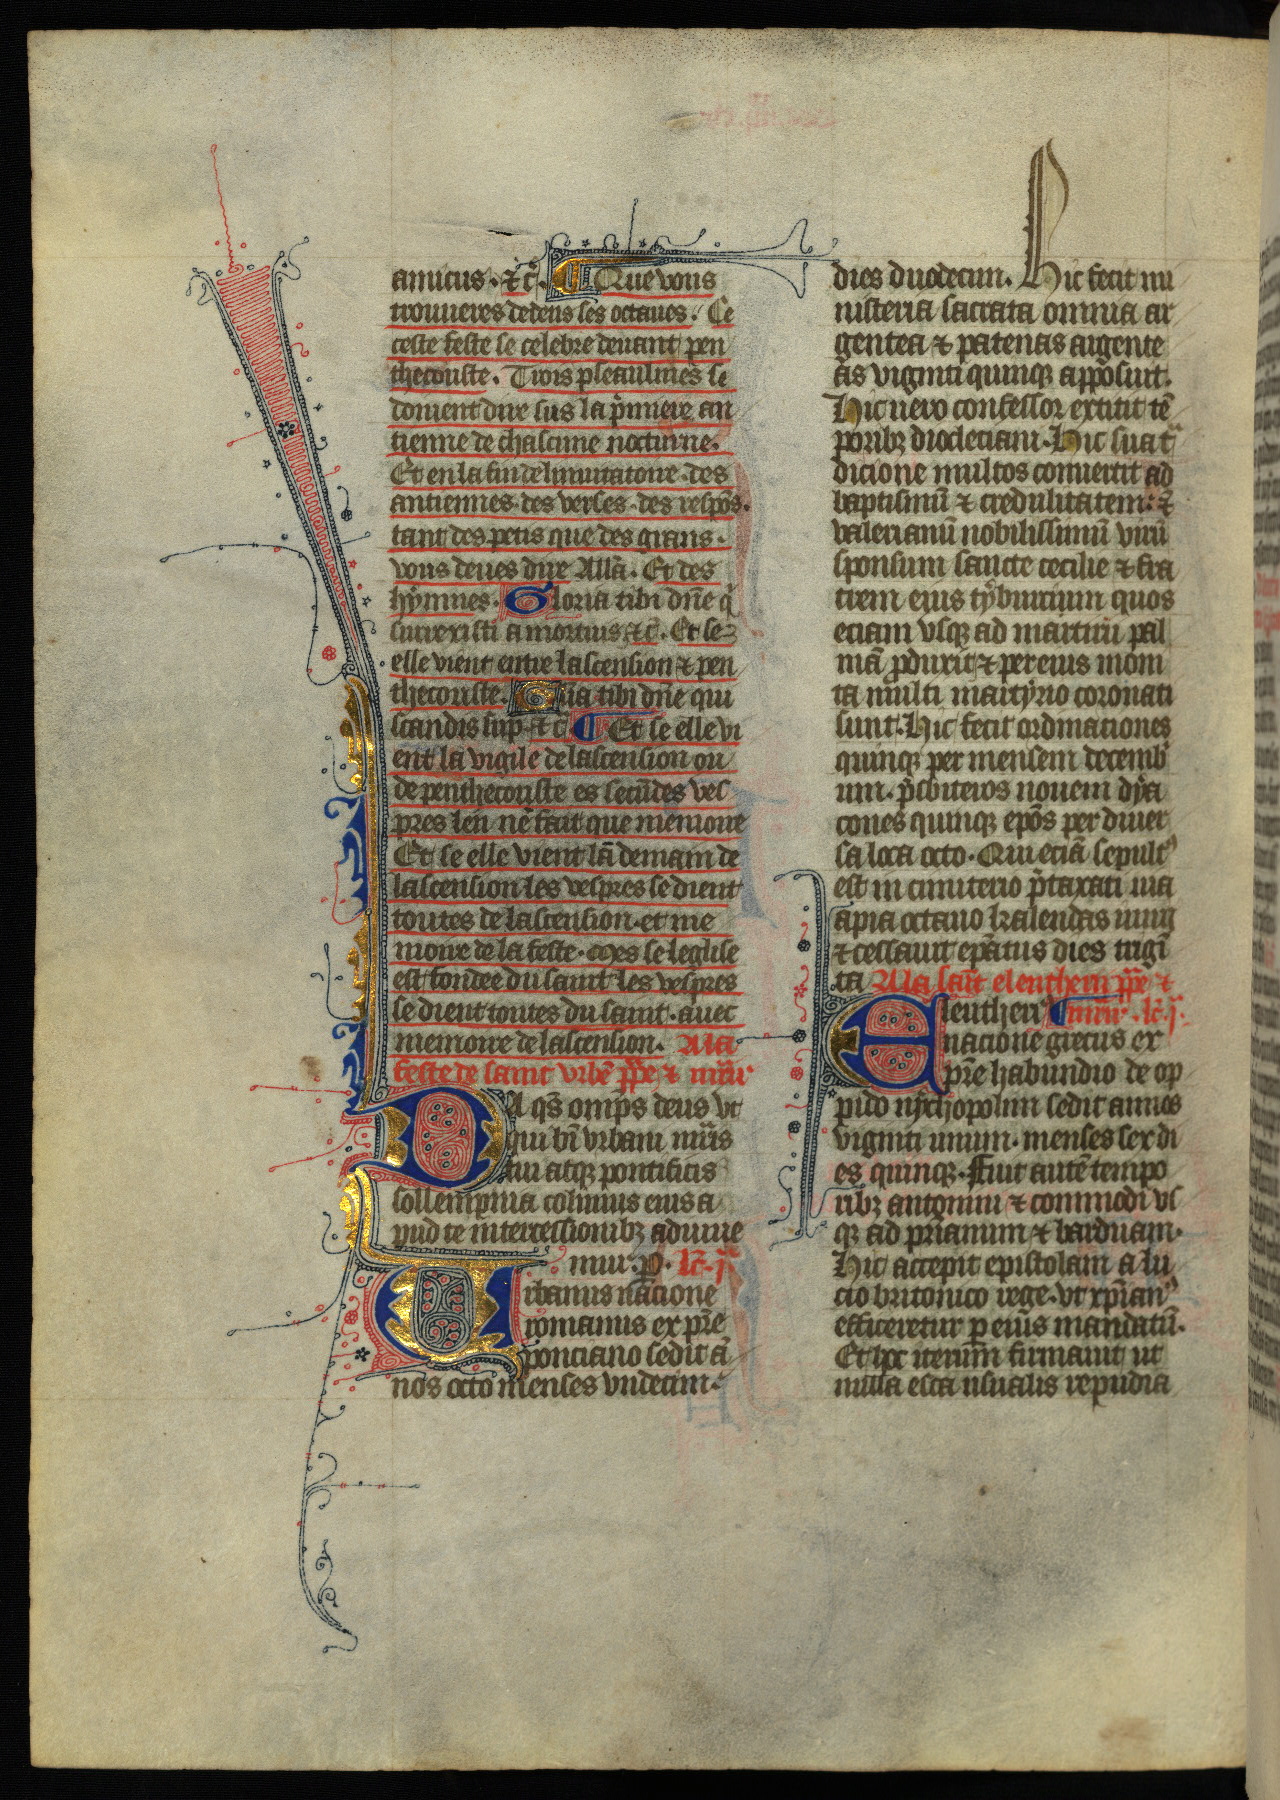 amicus · ⁊ c̄. ¶ Que vous
trouueres dedens ses octaues. Ce
ceste feste se celebre deuant pen
thecouste. Trois pseaulmes se
doiuent dire sus la p̄miere an
tienne de chascune nocturne.
Et en la fin del inuitatoire · des
antiennes · des verses · des respōs.
tant des petis que des grans.
vous deues dire All̄a. Et des
hymnes. Gloria tibi dn̄e q̇
surrexisti a mortuis ⁊ c̄. Et se
elle vient entre lascension ⁊ pen
thecouste. Gl̄ia tibi dn̄e qui
scandis sup̄ ⁊ c̄ ¶ Et se elle vi
ent la vigile de lascension ou
de penthecouste es secūdes ves
pres len nē fait que memoire
Et se elle vient lādemain de
lascension les vespres se dient
toutes de lascension · et me
moire de la feste · Mes se leglise
est fondee du saint les vespres
se dient toutes du saint · auec
memoire de lascension. A la
feste de saint vrbē pp̄e ⁊ mart̄ir
DA qs̄ omp̄s deus vt
qui bt̄i vrbani mr̄is
tui atqꝫ pontificis
sollempnia colimus eius a
pud te intercessionibꝫ adiuue
mur. p̱. lc̄. j.ͣ
Urbanus nacione
romanus ex pr̄e
ponciano sedit ā
nos octo menses vndecim.
dies duodecim. Hic fecit mi
nisteria sacrata omnia ar
gentea ⁊ patenas argente
as viginti quinqꝫ apposuit.
Hic uero confessor extitit tē
poribꝫ diocleciani. Hic sua t̄ͣ
dicione multos conuertit ad
baptismū ⁊ credulitatem: ⁊
valerianū nobilissimū virū
sponsum sancte cecilie ⁊ fra
trem eius tyburcium quos
eciam vsqꝫ ad martirii pal
mā ꝑduxit ⁊ per eius moni
ta multi martyrio coronati
sunt. Hic fecit ordinationes
quinqꝫ per mensem decemb̄
um. p̄sbiteros nouem dya
cones quinqꝫ epōs per diuer
sa loca octo. Qui eciā sepult⁹
est in cimiterio p̄taxati uia
apia octauo kalendas iunij
⁊ cessauit epātus dies trigī
ta A la saīt eleutherii pp̄e ⁊
Eleutheri⁹ ¶ mart̄ir · lc̄. j.ͣ
nacione grecus ex
pr̄e habundio de op
pido nychopolim sedit annos
viginti unum · menses sex di
es quinqꝫ. Fuit autē tempo
ribꝫ antonini ⁊ commodi vs
qꝫ ad prianum ⁊ barduam.
Hic accepit epistolam a lu
cio britonico rege · vt xp̄ian⁹
efficeretur ꝑ eius mandatū.
Et hoc iterum firmauit ut
nulla esca usualis repudia